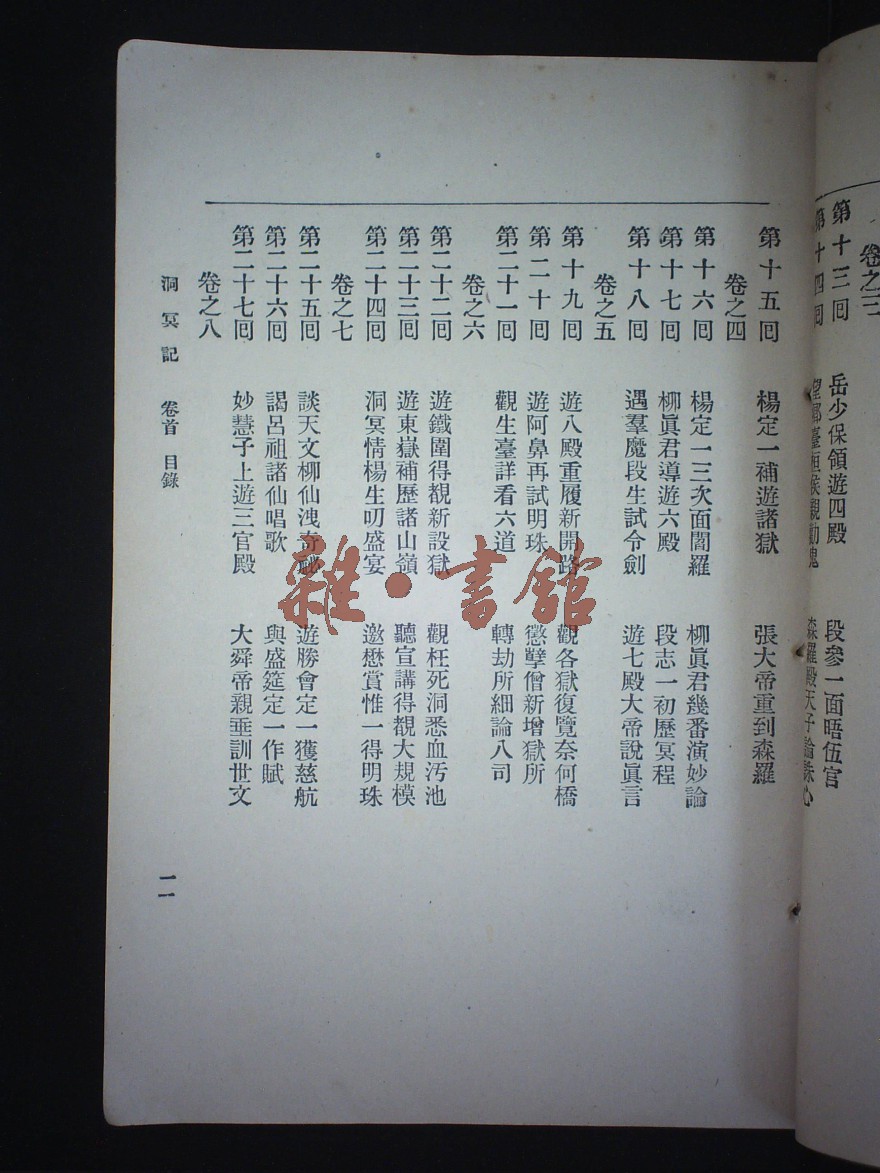 卷之三
第十三囘 岳少保領遊四殿 段參一面晤伍官
第十四囘 望鄉臺桓侯觀動魄 森羅殿天子論誅心
第十五囘 楊定一補遊諸獄 張大帝重到森羅
卷之四
第十六囘 楊定一三次面閻羅 柳眞君幾番演妙論
第十七囘 柳眞君導遊六殿 段志一初歷冥程
第十八囘 遇羣魔段生試令劍 遊七殿大帝說眞言
卷之五
第十九囘 遊八殿重履新開路 觀各獄復覽奈何橋
第二十囘 遊阿鼻再試明珠 懲孽僧新增獄所
第二十一囘 觀生臺詳看六道 轉劫所細論八司
卷之六
第二十二囘 遊鐵圍得覩新設獄 觀枉死洞悉血汚池
第二十三囘 遊東嶽補歷諸山嶺 聽宣講得覩大規模
第二十四囘 洞冥情楊生叨盛宴 邀懋賞惟一得明珠
卷之七
第二十五囘 談天文柳仙洩奇祕 遊勝會定一獲慈航
第二十六囘 謁呂祖諸仙唱歌 與盛筵定一作賦
第二十七囘 妙慧子上遊三官殿 大舜帝親垂訓世文
卷之八
洞冥記 卷首 目錄 二
雜·書館